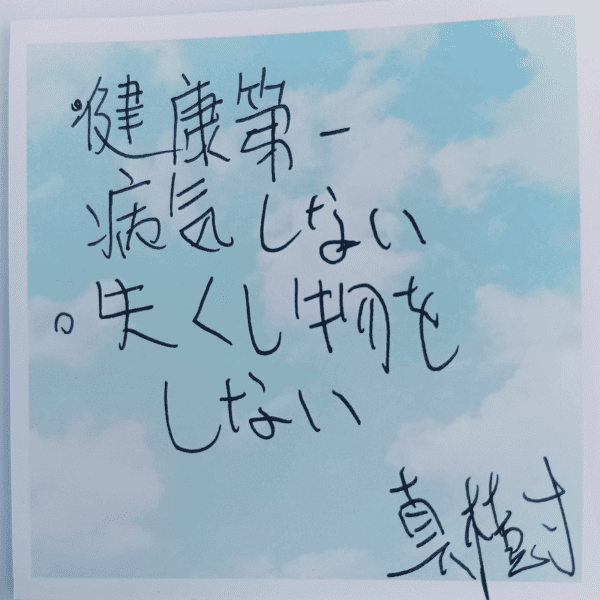 ・健康第一
病気しない
・失くし物を
しない
真樹